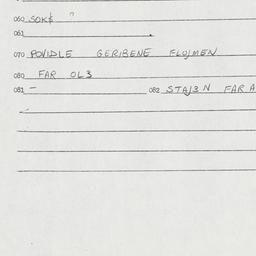 060 SOK$ "
061
070 POVIDLE GERIBENE FLOJMEN
080 FAR OL3
081 - 082 STAJ3N FAR A